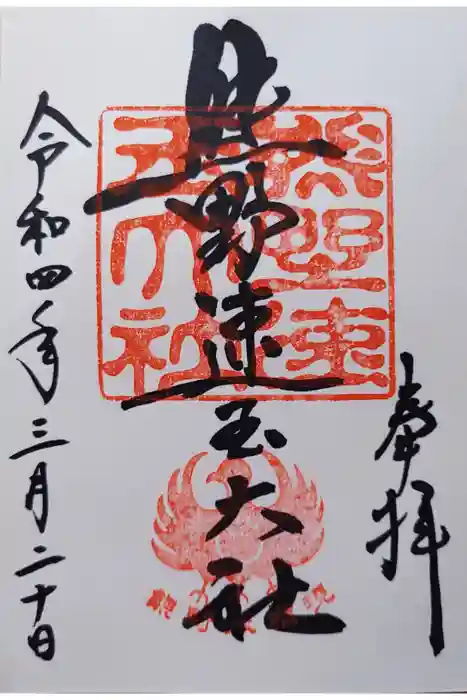 奉拝
熊野速玉大社
令和四年三月二十日
熊野速玉大社